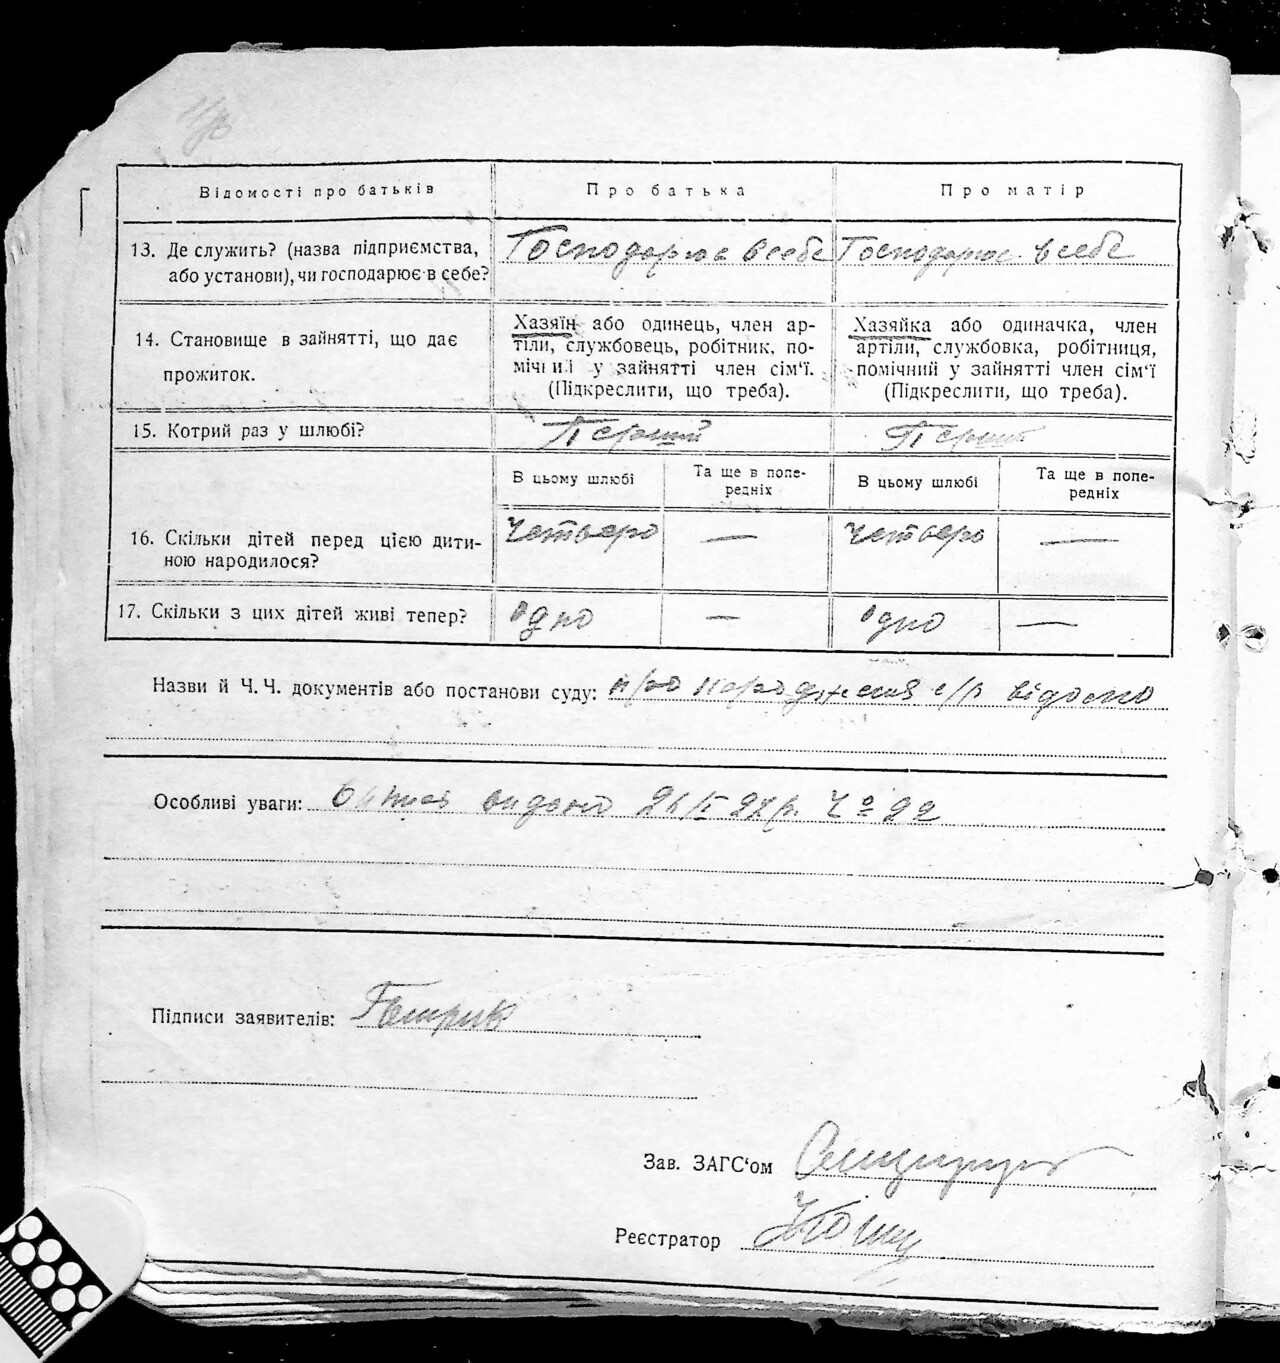 Відомості про батьків Про батька Про матір
13. Де служить? (назва підприємства, або установи), чи господарює в себе? Господарює в себе Господарює в себе
14. Становище в зайнятті, що дає прожиток.
Хазяїн або одинець, член ар-
тіли, службовець, робітник, по-
мічний у зайнятті член сім'ї.
(Підкреслити, що треба).
Хазяйка або одиначка, член
артіли, службовка, робітниця,
помічний у зайнятті член сім'ї
(Підкреслити, що треба).
15. Котрий раз у шлюбі? Перший Перший
В цьому шлюбі Та ще в попе-
редніх В цьому шлюбі Та ще в попе-
редніх
16. Скільки дітей перед цією дити-
ною народилося? Четверо — Четверо —
17. Скільки з цих дітей живі тепер? Одно — Одно —
Назви й Ч.Ч. документів або постанови суду: про народження с/р відомо
Особливі уваги: видано
Підписи заявителів:
Зав. ЗАГС'ом
Реєстратор